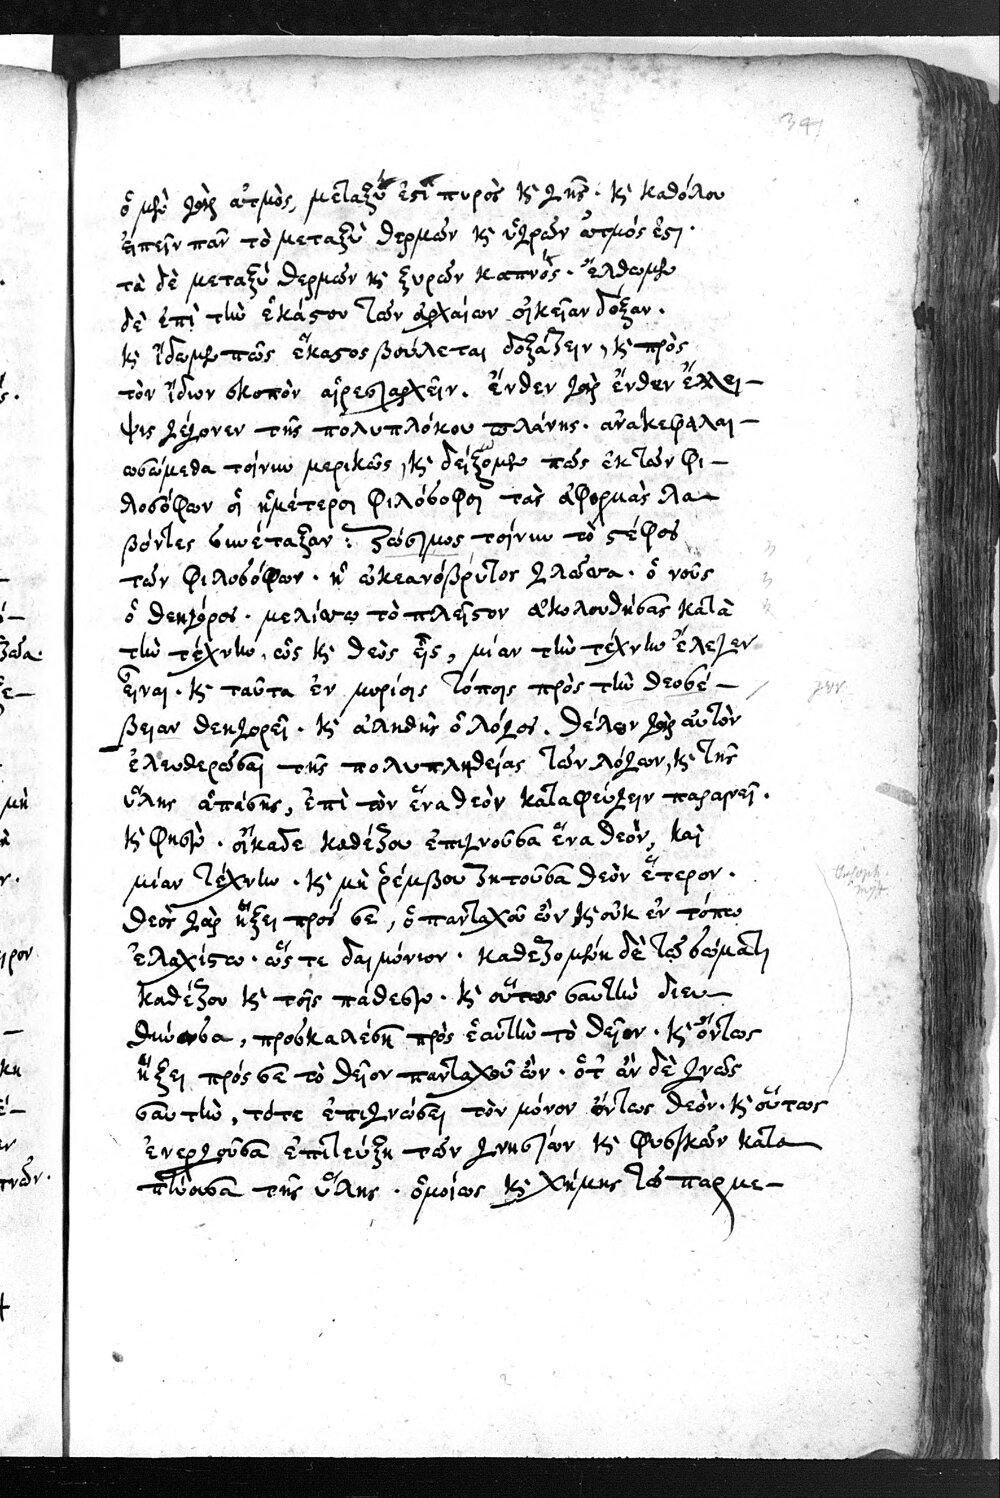 341
ὁ μὲν γὰρ ἀτμὸς, μεταξύ ἐστι πυρὸς κ̀ γῆς· κ̀ καθόλου
εἰπεῖν πᾶν τὸ μεταξὺ θερμῶν κ̀ ὑγρῶν ἀτμός ἐστι·
τὰ δὲ μεταξὺ θερμῶν κ̀ ξυρῶν καπνός· ἔλθωμεν
δὲ ἐπὶ τὴν ἑκάστου τῶν ἀρχαίων οἰκείαν δόξαν.
κ̀ ἴδωμεν πῶς ἕκαστος βούλεται δοξάζειν, κ̀ πρὸς
τὸν ἴδιον σκοπὸν αἱρεσιαρχεῖν. ἔνθεν γὰρ ἔνθεν ἔλλει-
ψις γέγονεν τῆς πολυπλόκου πλάνης· ἀνακεφαλαι-
ωσώμεθα τοίνυν μερικῶς, κ̀ δείξομεν πῶς ἐκ τῶν φι-
λοσόφων οἱ ἡμέτεροι φιλόσοφοι τὰς ἀφορμὰς λα
βόντες συνέταξαν: Ζώσιμος τοίνυν τὸ στέφος
τῶν φιλοσόφων· ἡ ὠκεανόβρυτος γλῶσσα· ὁ νοῦς
ὁ θεηγόρος· μελίσσω τὸ πλεῖστον ἀκολουθήσας κατὰ
τὴν τέχνην, ὡς κ̀ θεὸς εἷς, μίαν τὴν τέχνην ἔλεγεν
εἶναι· κ̀ ταῦτα ἐν μυρίοις τόποις πρὸς τὴν θεοσέ-
βειαν θεηγορεῖ· κ̀ ἀληθὴς ὁ λόγος. θέλων γὰρ αὐτὸν
ἐλευθερῶσαι τῆς πολυπληθείας τῶν λόγων, κ̀ τῆς
ὕλης ἁπάσης, ἐπὶ τὸν ἕνα θεὸν καταφεύγειν παραινεῖ·
κ̀ φησὶν· οἴκαδε καθέζου ἐπιγνοῦσα ἕνα θεὸν, καὶ
μίαν τέχνην· κ̀ μὴ ῥέμβου ζητοῦσα θεὸν ἕτερον·
θεὸς γὰρ ἥξει πρός σε, ὁ πανταχοῦ ὢν κ̀ οὐκ ἐν τόπω
ἐλαχίστω· ὥς τε δαιμόνιον· καθεζομένη δὲ τῷ σώματι
καθέζου κ̀ τοῖς πάθεσιν· κ̀ οὕτως σαυτὴν διευ-
θύνασα, προσκαλέσῃ πρὸς ἑαυτὴν τὸ θεῖον· κ̀ ὄντως
ἥξει πρός σε τὸ θεῖον πανταχοῦ ὤν· ὅτ ἂν δὲ γνῷς
σαυτὴν, τότε ἐπιγνώσει τὸν μόνον ὄντως θεόν· κ̀ οὕτως
ἐνεργοῦσα ἐπιτεύξῃ τῶν γνησίων κ̀ φυσικῶν κατα
πτύουσα τῆς ὕλης· ὁμοίως κ̀ χήμης τῷ παρμε-